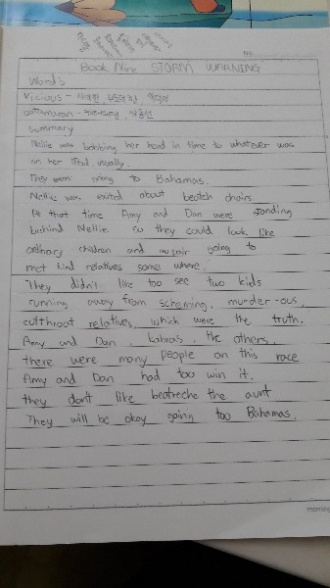 No.
Book Nine STORM WARNING
Words
Vicious -
summary
Nellie was bobbing her head in time to whatever was
on her iPod, usually.
They were going to Bahamas.
Nellie was exited about beatch chairs
At that time Amy and Dan were standing
behind Nellie so they could look like
ordinary children and au pair going to
met kind relatives some where.
They didn't like too see two kids
running away from scheming, murder-ous,
cutthroat relatives, which were the truth.
Amy and Dan, the others.
there were many people on this race
Amy and Dan had too win it.
they don't like the aunt
They will be okay going too Bahamas.